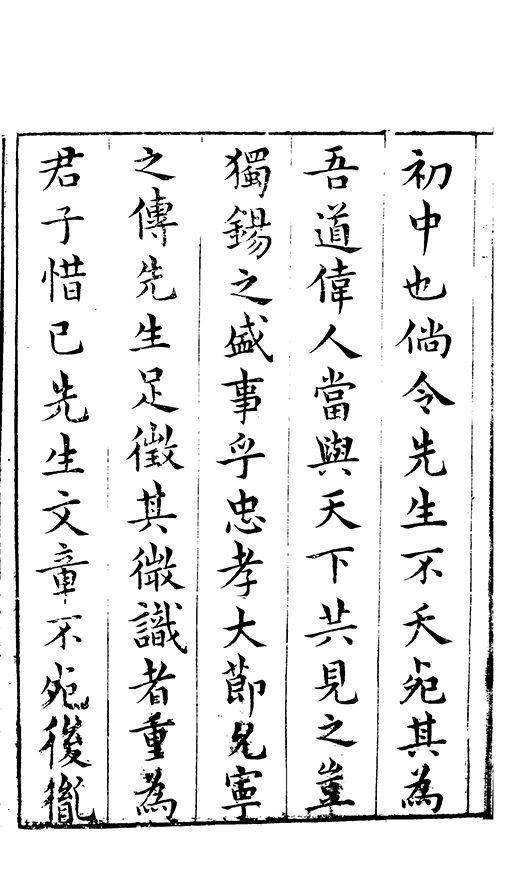 初中也倘令先生不夭死其為
吾道偉人當與天下共見之豈
獨錫之盛事乎忠孝大節兄寧
之傳先生足徵其微識者重為
君子惜已先生文章不死後胤